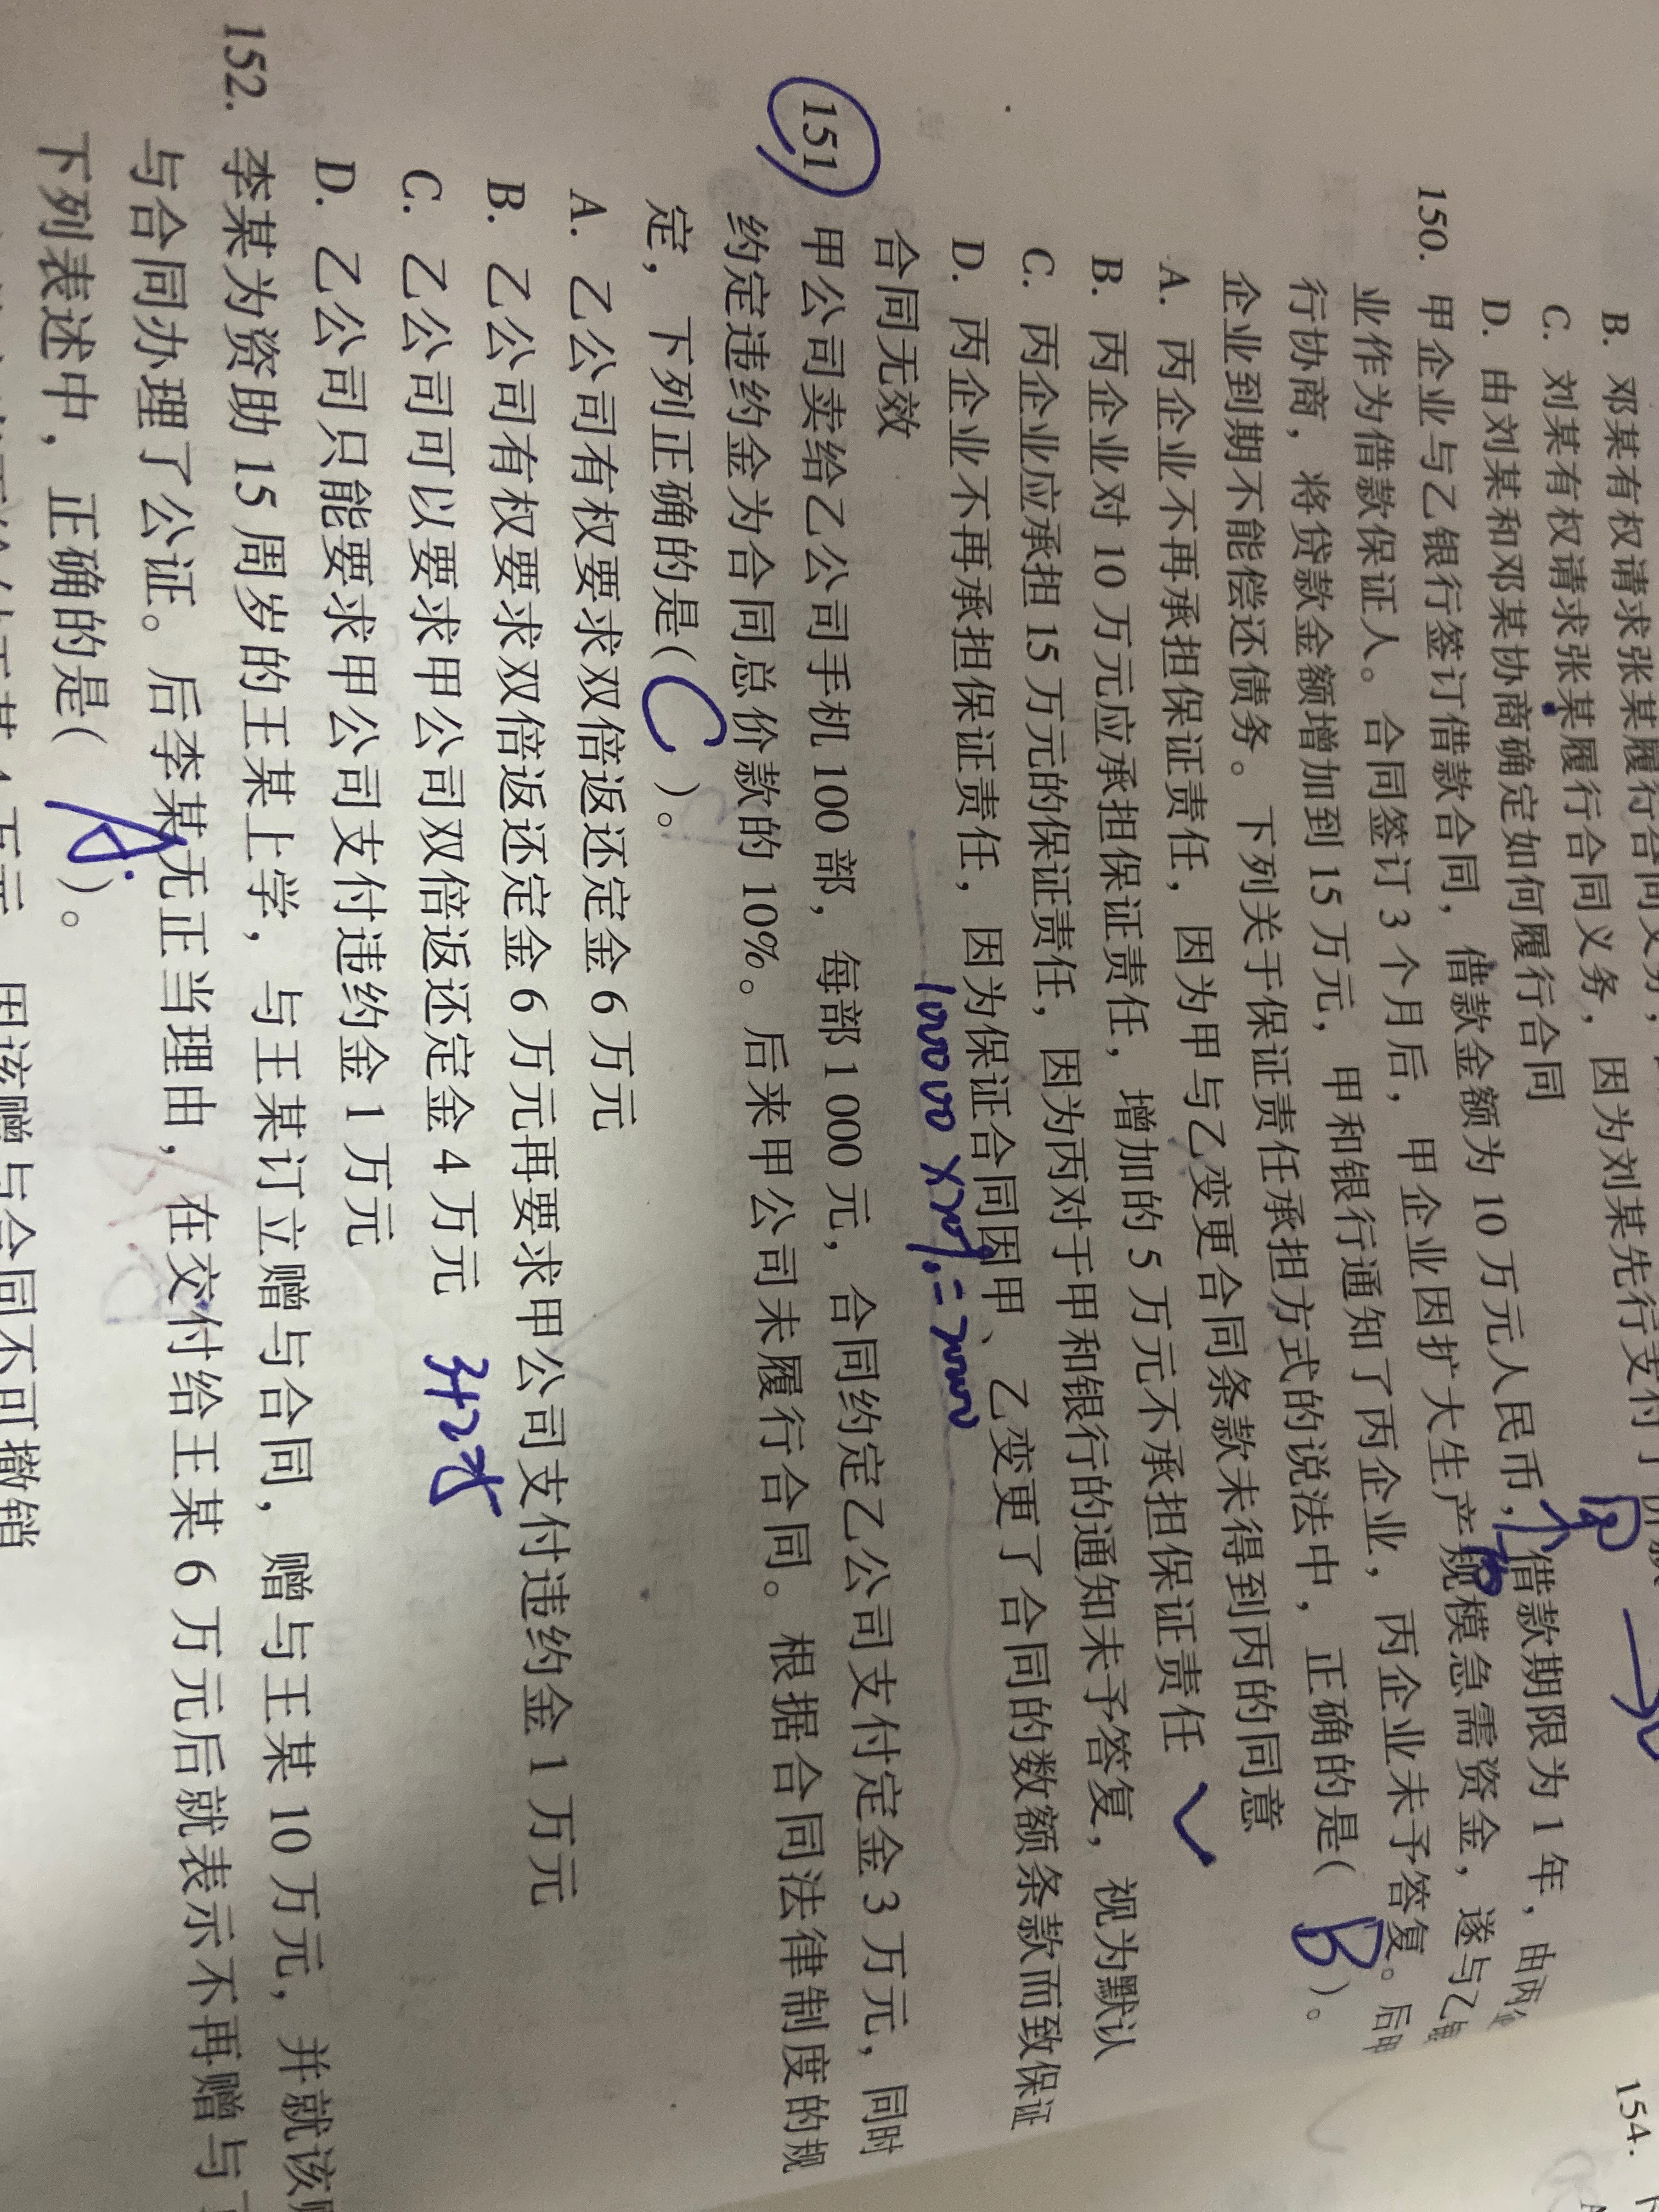 B. 邓某有权请求张某履行合同义务,
C. 刘某有权请求张某履行合同义务, 因为刘某先行支付了
D. 由刘某和邓某协商确定如何履行合同
150. 甲企业与乙银行签订借款合同, 借款金额为 10 万元人民币, 借款期限为 1 年, 由丙企
业作为借款保证人。合同签订 3 个月后, 甲企业因扩大生产规模急需资金, 遂与乙银
行协商, 将贷款金额增加到 15 万元, 甲和银行通知了丙企业, 丙企业未予答复。后甲
企业到期不能偿还债务。下列关于保证责任承担方式的说法中, 正确的是( B )。
A. 丙企业不再承担保证责任, 因为甲与乙变更合同条款未得到丙的同意
B. 丙企业对 10 万元应承担保证责任, 增加的 5 万元不承担保证责任
C. 丙企业应承担 15 万元的保证责任, 因为丙对于甲和银行的通知未予答复, 视为默认
D. 丙企业不再承担保证责任, 因为保证合同因甲、乙变更了合同的数额条款而致保证
合同无效
100000×20%=20000
151. 甲公司卖给乙公司手机 100 部, 每部 1 000 元, 合同约定乙公司支付定金 3 万元, 同时
约定违约金为合同总价款的 10%。后来甲公司未履行合同。根据合同法律制度的规
定, 下列正确的是( C )。
A. 乙公司有权要求双倍返还定金 6 万元
B. 乙公司有权要求双倍返还定金 6 万元再要求甲公司支付违约金 1 万元
C. 乙公司可以要求甲公司双倍返还定金 4 万元
D. 乙公司只能要求甲公司支付违约金 1 万元
152. 李某为资助 15 周岁的王某上学, 与王某订立赠与合同, 赠与王某 10 万元, 并就该赠
与合同办理了公证。后李某无正当理由, 在交付给王某 6 万元后就表示不再赠与了
下列表述中, 正确的是( A )。
因该赠与合同不可撤销
154.